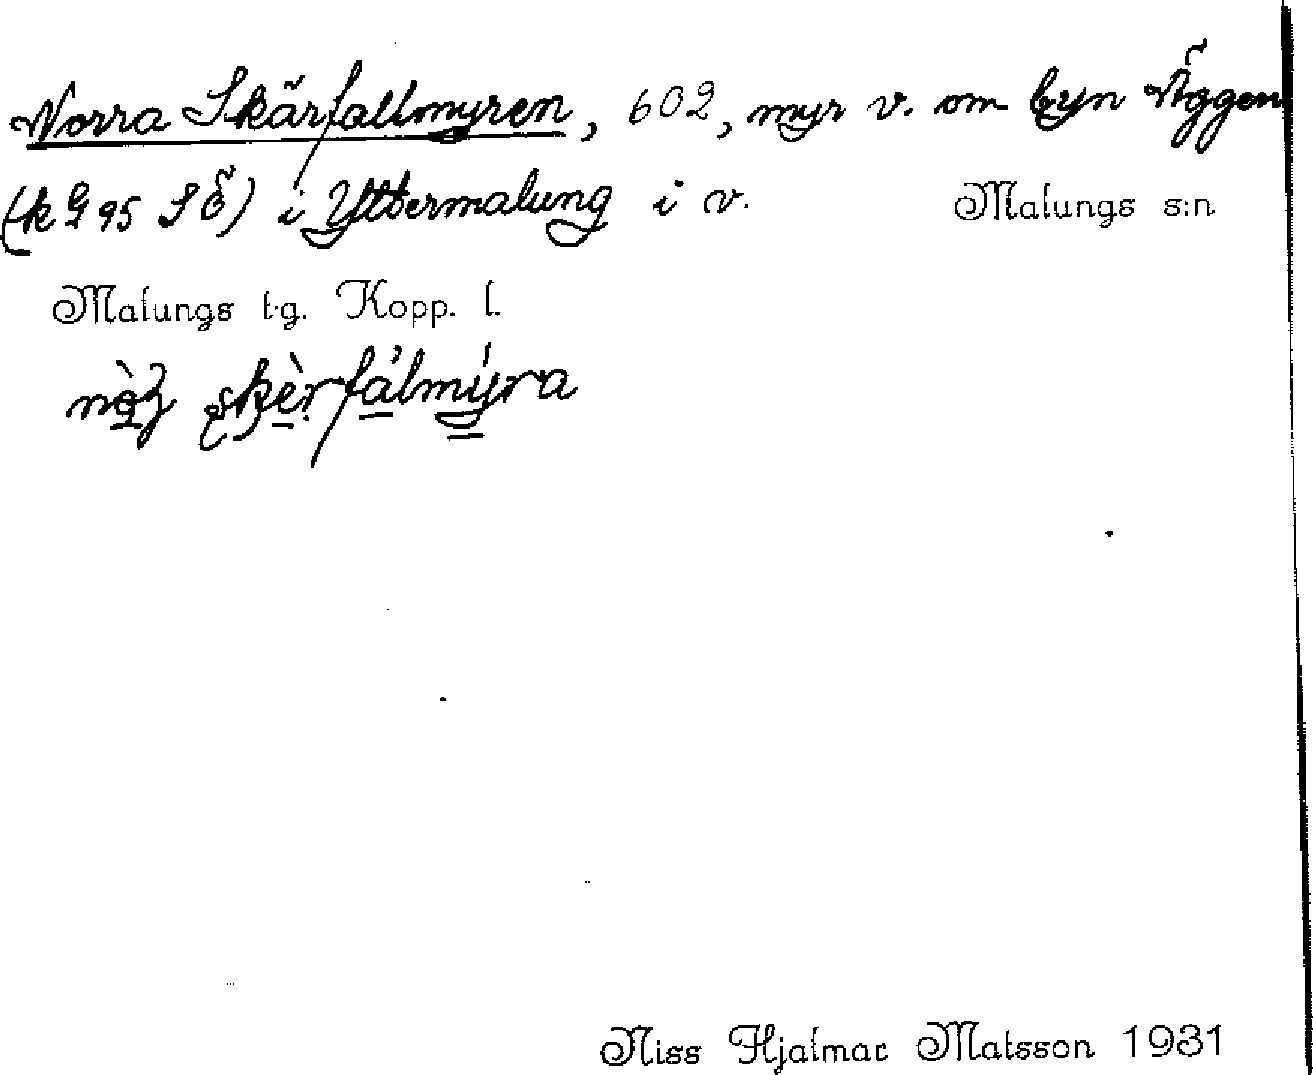 Norra Skärfallmyren, 602, myr v. om byn Äggen
(k G 95 S Ö) i Yttermalung i v. Malungs s:n
Malungs t.g. Kopp. l.
skèrfálmýra
Niss Hjalmar Matsson 1931